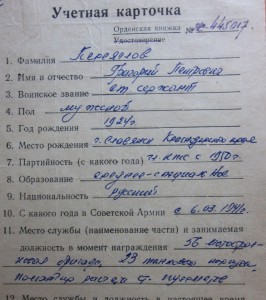 Учетная карточка
Орденская книжка № гр. 445017
Удостоверение
1. Фамилия Переяслов
2. Имя и отчество Григорий Петрович
3. Воинское звание ст сержант
4. Пол мужской
5. Год рождения 1924 г.
6. Место рождения г. Славянск Краснодарского края
7. Партийность (с какого года) чл КПСС с 1950 г.
8. Образование среднее-специальное
9. Национальность русский
10. С какого года в Советской Армии с 6.03.1942г.
11. Место службы (наименование части) и занимаемая
должность в момент награждения 56
бригада, 23 танкового корпуса
расчета ст. пулемета
12. Место службы и должность в настоящее время